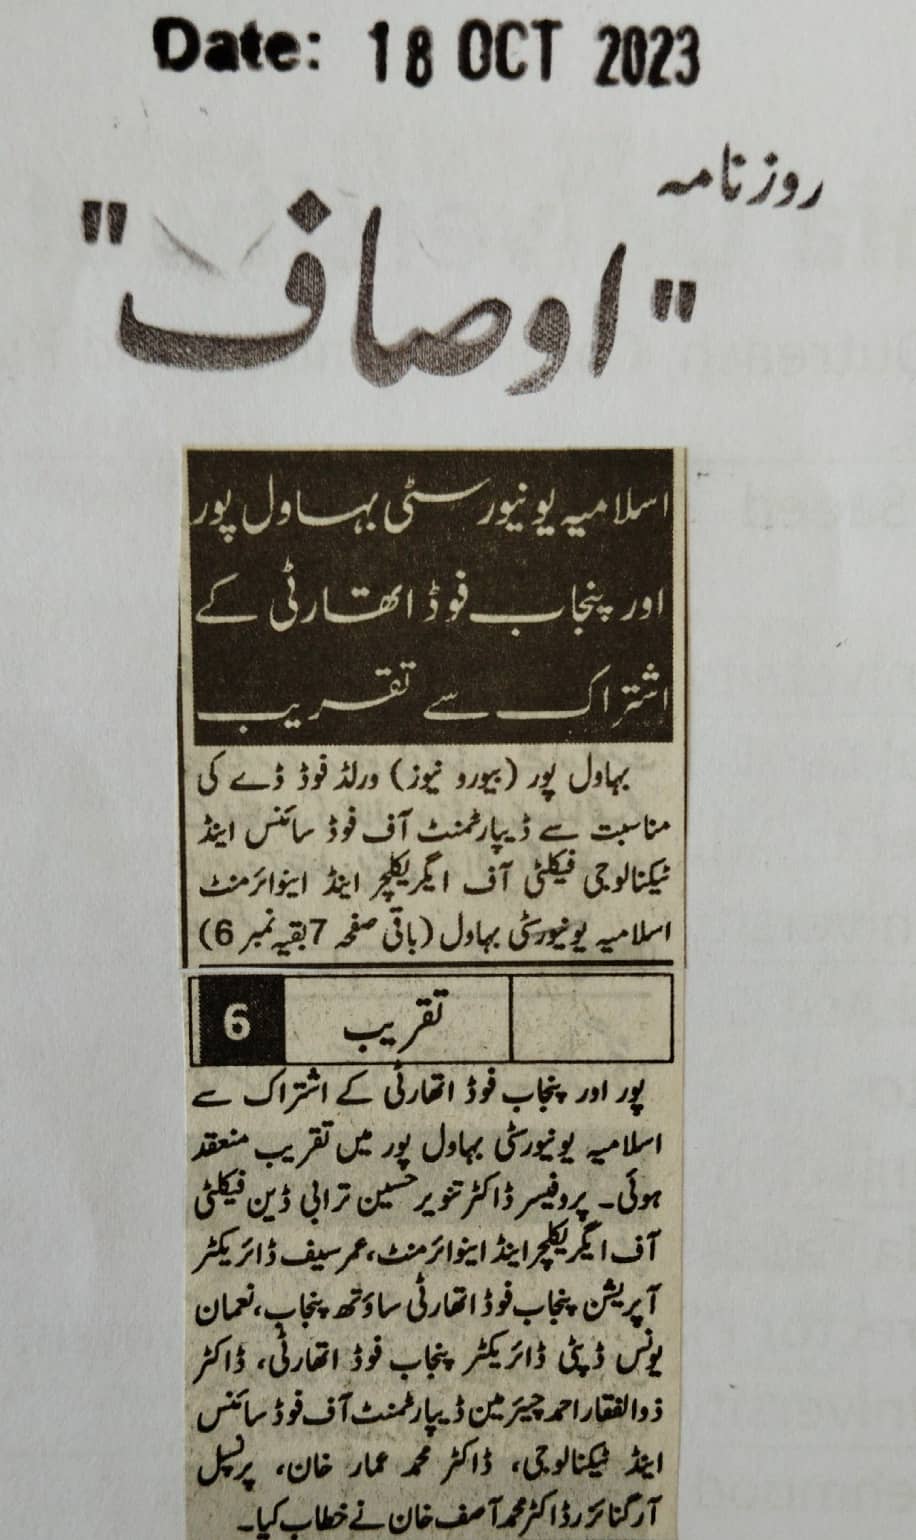 Date: 18 OCT 2023
روزنامہ
"اوصاف"
اسلامیہ یونیورسٹی بہاول پور
اور پنجاب فوڈ اتھارٹی کے
اشتراک سے تقریب
بہاول پور (بیورو نیوز) ورلڈ فوڈ ڈے کی
مناسبت سے ڈیپارٹمنٹ آف فوڈ سائنس اینڈ
ٹیکنالوجی فیکلٹی آف ایگریکلچر اینڈ اینوائرمنٹ
اسلامیہ یونیورسٹی بہاول (باقی صفحہ 7 بقیہ نمبر 6)
تقریب 6
پور اور پنجاب فوڈ اتھارٹی کے اشتراک سے
اسلامیہ یونیورسٹی بہاول پور میں تقریب منعقد
ہوئی۔ پروفیسر ڈاکٹر تنویر حسین ترابی ڈین فیکلٹی
آف ایگریکلچر اینڈ اینوائرمنٹ، عمر سیف ڈائریکٹر
آپریشن پنجاب فوڈ اتھارٹی ساؤتھ پنجاب، نعمان
یونس ڈپٹی ڈائریکٹر پنجاب فوڈ اتھارٹی، ڈاکٹر
ذوالفقار احمد چیئرمین ڈیپارٹمنٹ آف فوڈ سائنس
اینڈ ٹیکنالوجی، ڈاکٹر محمد عمار خان، پرنسپل
آرگنائزر ڈاکٹر محمد آصف خان نے خطاب کیا۔